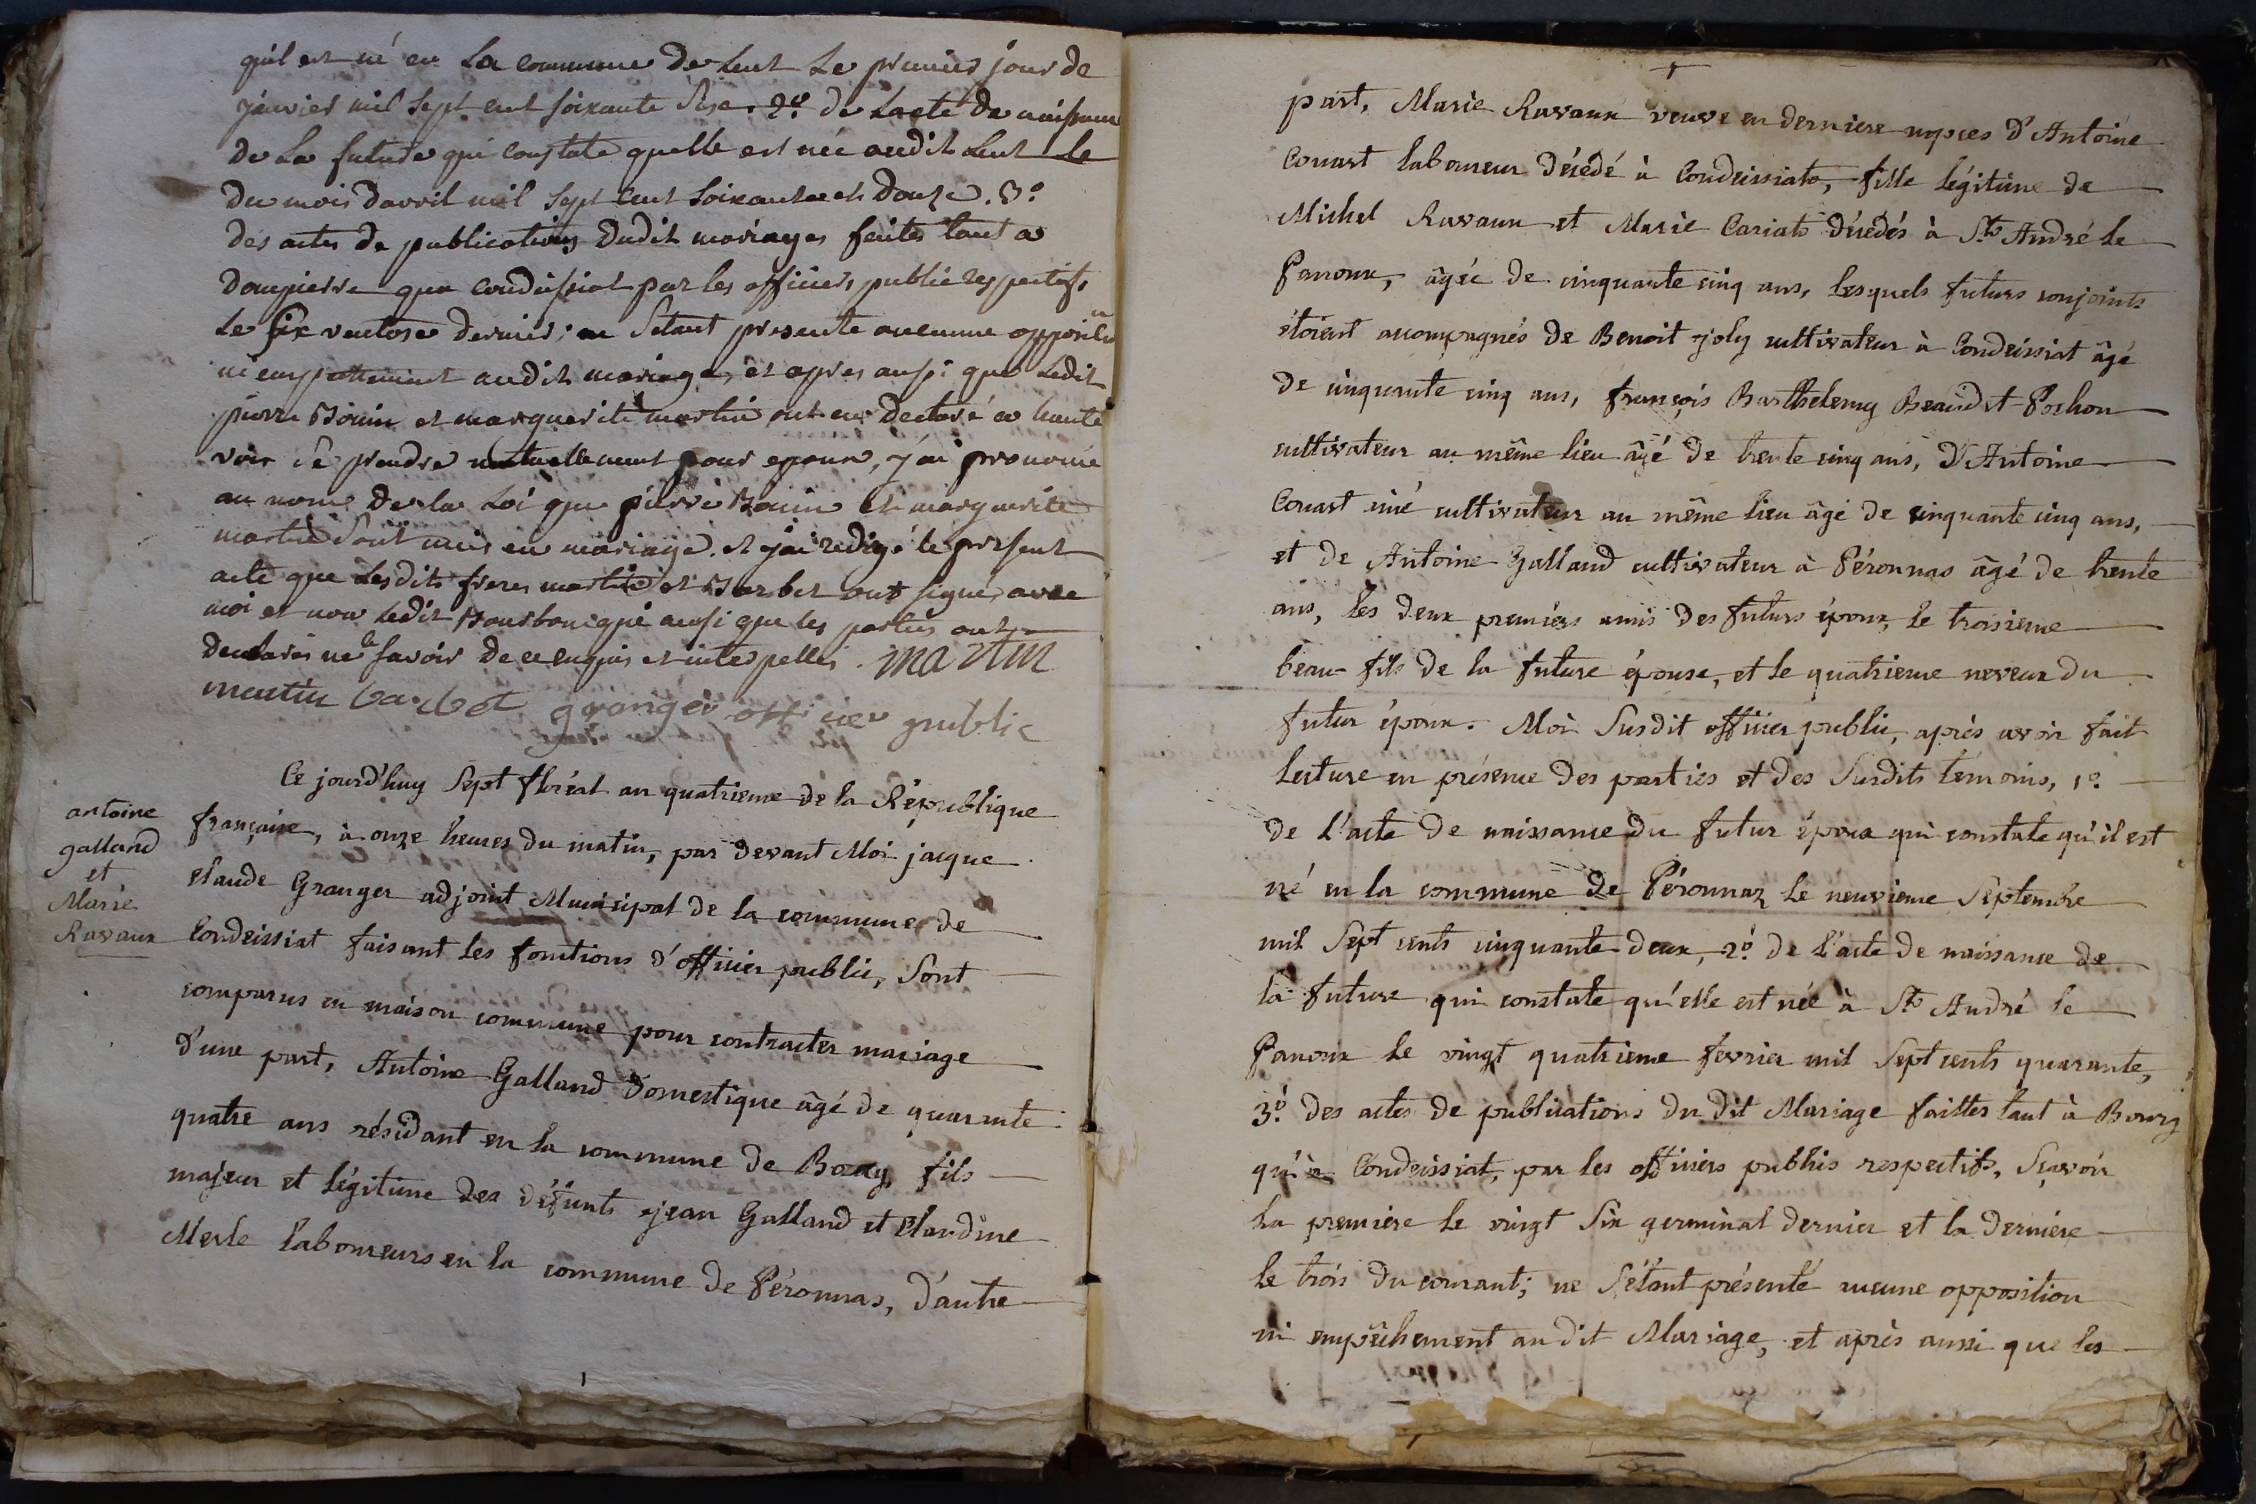 qu'il est né en la commune de Lent le premier jour de
janvier mil sept cent soixante seize. 2º. de lacte de naissance
de la future qui constate quelle est née audit Lent le
du mois davril mil sept cent soixante et douze. 3º
des actes de publications dudit mariages faites tant a
dompierre que condeissiat par les officiers public respectifs
le six ventose dernier; ne setant presente aucunne opposition
ni empettement audit mariage, et apres aussi que ledit
pierre Bouin et marguerite martin ont eu declaré a haute
voix se prendre mutuellement pour epoux, j'ai prononcé
au nom de la Loi que pierre Bouin et marguerite
martin sont unis en mariage. et j'ai redigé le present
acte que lesdits freres martin et Barbet ont signé avec
moi et non ledit Bourbon qui aussi que les parties ont
declarés ne le savoir de ce enquis et interpellés. martin
martin barbet granger officier public
Ce jourd'huy Sept floréal an quatrieme de la République
française, à onze heures du matin, par devant Moi jacque
claude Granger adjoint Municipal de la commune de
Condeissiat faisant les fonctions d'officier public, Sont
comparus en maison commune pour contracter mariage
d'une part, Antoine Galland Domestique âgé de quarante
quatre ans résidant en la commune de Bourg, fils
majeur et légitime des défunts jean Galland et Claudine
Merle laboureurs en la commune de Péronnas, d'autre
antoine
galland
et
Marie
Ravaux
part, Marie Ravaux veuve en derniere nopces d'Antoine
Convert laboureur décédé à Condeissiat, fille légitime de
Michel Ravaux et Marie Cariat décédés à St André le
Panoux, âgée de cinquante cinq ans, lesquels futurs conjoints
étoient accompagnés de Benoit joly cultivateur à Condeissiat âgé
de cinquante cinq ans, françois Barthelemy Beaudet Pochon
cultivateur au même lieu âgé de trente cinq ans, d'Antoine
Convert ainé cultivateur au même lieu âgé de cinquante cinq ans,
et de Antoine Galland cultivateur à Péronnas âgé de trente
ans, les deux premiers amis des futurs époux, le troisieme
beau-fils de la future épouse, et le quatrieme neveux du
futur époux. Moi Susdit officier public, après avoir fait
lecture en présence des parties et des Susdits témoins, 1º.
de L'acte de naissance du futur époux qui constate qu'il est
né en la commune de Péronnaz le neuvieme Septembre
mil Sept cents cinquante deux, 2º. de l'acte de naissance de
la future qui constate qu'elle est née à St André le
Panoux le vingt quatrieme fevrier mil Sept cents quarante,
3º. des actes de publications du dit Mariage faittes tant à Bourg
qu'à Condeissiat, par les officiers publics respectifs, Sçavoir
La premiere le vingt Six germinal dernier et la derniere
le trois du courant; ne S'étant présenté aucune opposition
ni empêchement au dit Mariage, et après aussi que les